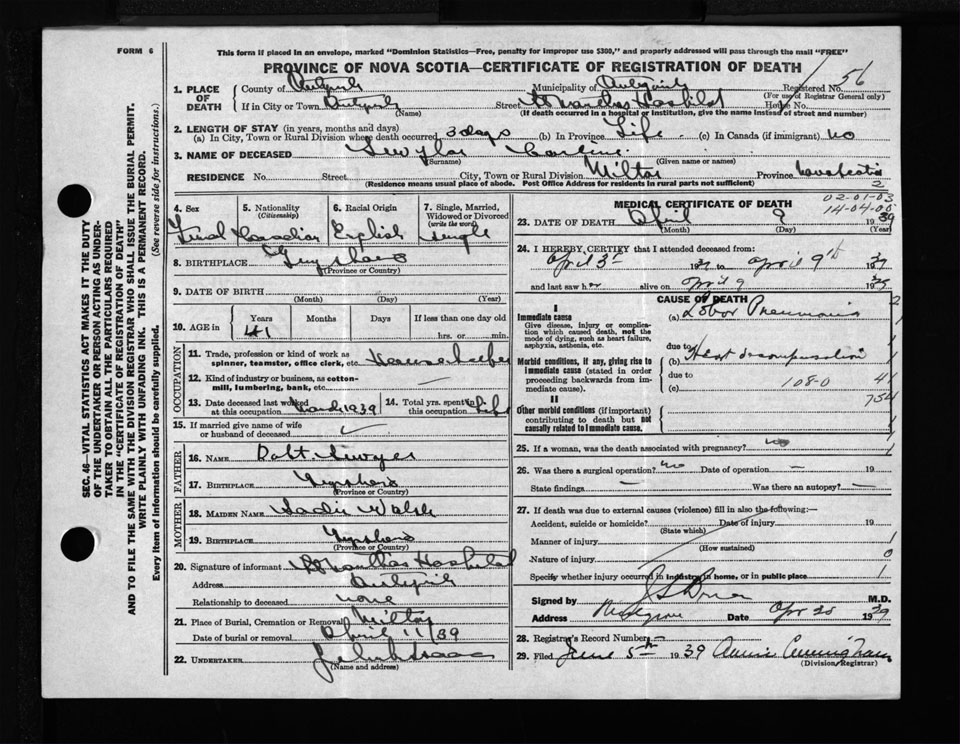 FORM 6
This form if placed in an envelope, marked "Dominion Statistics—Free, penalty for improper use $300," and properly addressed will pass through the mail "FREE"
PROVINCE OF NOVA SCOTIA—CERTIFICATE OF REGISTRATION OF DEATH
56
1. PLACE OF DEATH
County of
Municipality of
Registered No.
(For use of Registrar General only)
If in City or Town
(Name)
Street
House No.
(If death occurred in a hospital or institution, give the name instead of street and number)
2. LENGTH OF STAY (in years, months and days)
(a) In City, Town or Rural Division where death occurred 3 days (b) In Province Life (c) In Canada (if immigrant) no
3. NAME OF DECEASED
(Surname) (Given name or names)
RESIDENCE No. Street City, Town or Rural Division Milton Province Nova Scotia
(Residence means usual place of abode. Post Office Address for residents in rural parts not sufficient)
2
4. Sex
5. Nationality (Citizenship) Canadian
6. Racial Origin English
7. Single, Married, Widowed or Divorced (write the word) Single
8. BIRTHPLACE
(Province or Country)
9. DATE OF BIRTH
(Month) (Day) (Year)
10. AGE in Years Months Days If less than one day old
41 hrs. or min.
OCCUPATION
11. Trade, profession or kind of work as spinner, teamster, office clerk, etc. Housekeeper
12. Kind of industry or business, as cotton-mill, lumbering, bank, etc. —
13. Date deceased last worked at this occupation March 1939
14. Total yrs. spent in this occupation Life
15. If married give name of wife or husband of deceased
FATHER
16. NAME Robt
17. BIRTHPLACE
(Province or Country)
MOTHER
18. MAIDEN NAME Sadie Walsh
19. BIRTHPLACE
(Province or Country)
20. Signature of informant Hospital
Address
Relationship to deceased none
21. Place of Burial, Cremation or Removal Milton
Date of burial or removal April 11/39
22. UNDERTAKER
(Name and address)
MEDICAL CERTIFICATE OF DEATH
02-01-03
14-04-00
23. DATE OF DEATH April 9 1939
(Month) (Day) (Year)
24. I HEREBY CERTIFY that I attended deceased from:
April 3rd 1939 to April 9th 1939
and last saw her alive on April 9 1939
CAUSE OF DEATH
I
Immediate cause
Give disease, injury or complication which caused death, not the mode of dying, such as heart failure, asphyxia, asthenia, etc.
(a) Lobar Pneumonia
due to
Morbid conditions, if any, giving rise to immediate cause (stated in order proceeding backwards from immediate cause).
(b) Heart decompensation
due to
(c) 108-0
II
Other morbid conditions (if important) contributing to death but not causally related to immediate cause.
25. If a woman, was the death associated with pregnancy? no
26. Was there a surgical operation? no Date of operation — 19
State findings — Was there an autopsy? —
27. If death was due to external causes (violence) fill in also the following:—
Accident, suicide or homicide? Date of injury 19
(State which)
Manner of injury
(How sustained)
Nature of injury
Specify whether injury occurred in industry, in home, or in public place
Signed by M.D.
Address Date Apr 25 1939
28. Registrar's Record Number —
29. Filed June 5th 1939 Annie Cunningham
(Division Registrar)
SEC. 46—VITAL STATISTICS ACT MAKES IT THE DUTY OF THE UNDERTAKER OR PERSON ACTING AS UNDERTAKER TO OBTAIN ALL THE PARTICULARS REQUIRED IN THE "CERTIFICATE OF REGISTRATION OF DEATH"
AND TO FILE THE SAME WITH THE DIVISION REGISTRAR WHO SHALL ISSUE THE BURIAL PERMIT.
WRITE PLAINLY WITH UNFADING INK. THIS IS A PERMANENT RECORD.
Every item of Information should be carefully supplied. (See reverse side for instructions.)